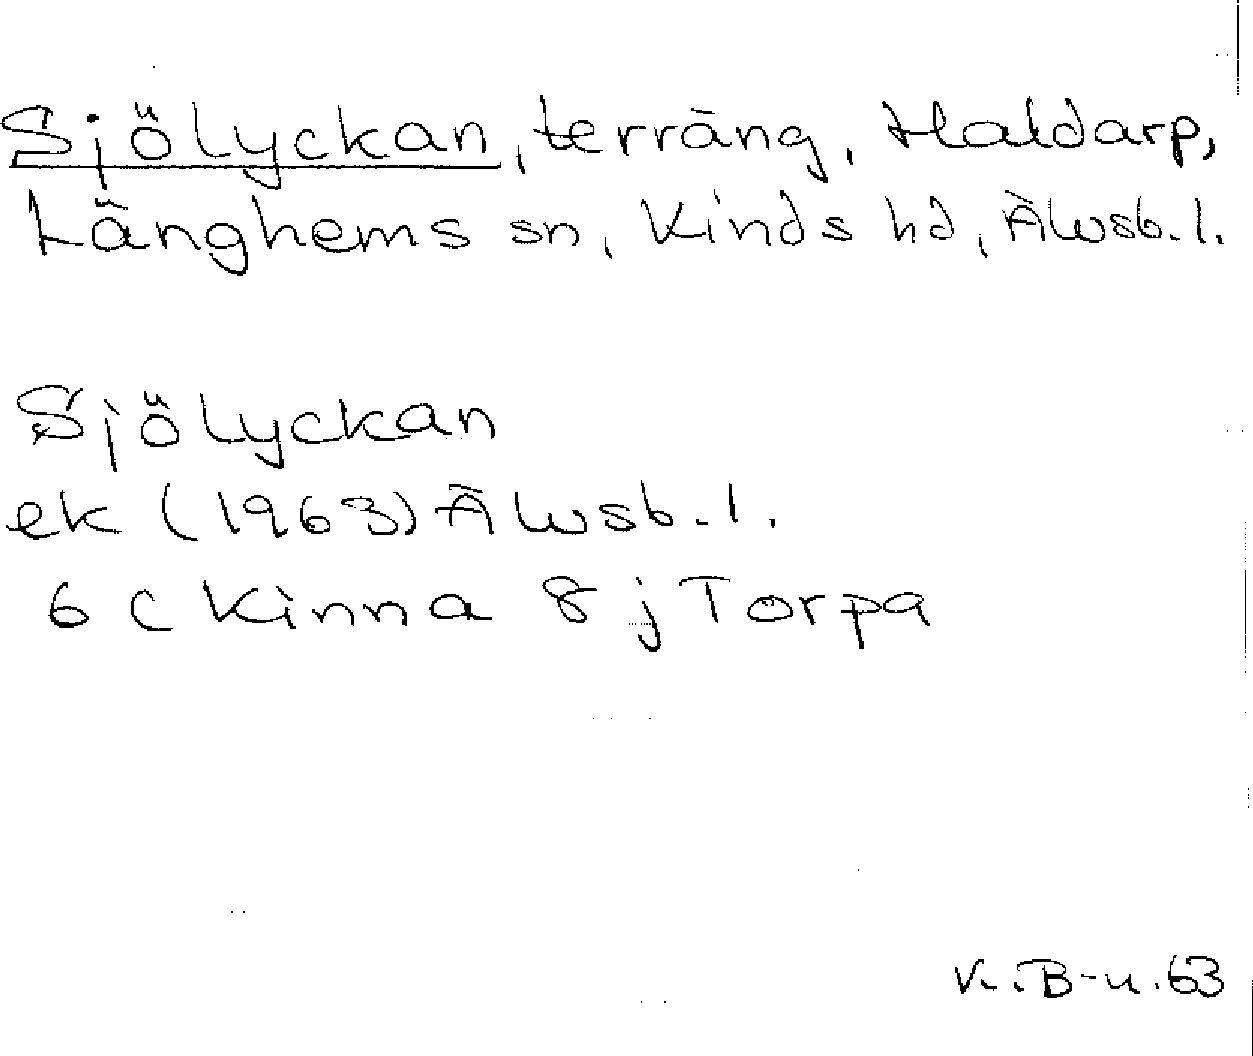 Sjölyckan, terräng, Haldarp,
Länghems sn, Kinds hd, Älvsb. l.
Sjölyckan
ek (1963) Älvsb. l.
6 C Kinna 8 j Torpa
V. B-n. 63